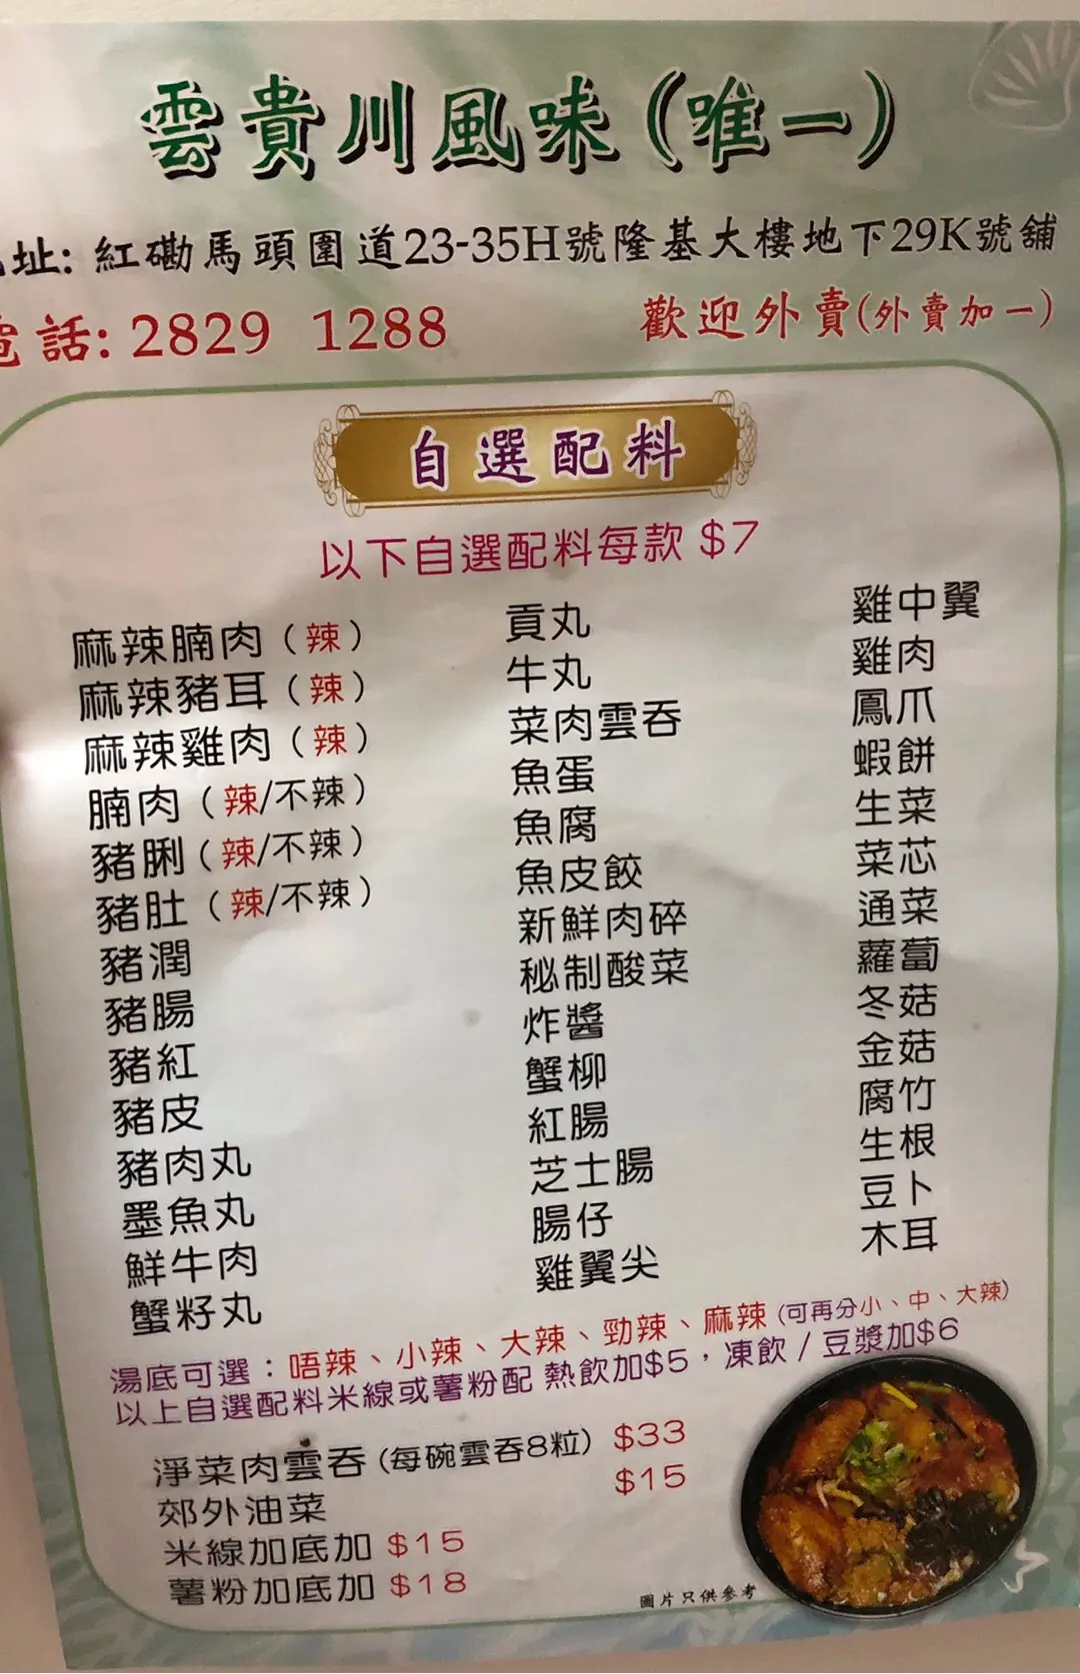 雲貴川風味(唯一)
址: 紅磡馬頭圍道23-35H號隆基大樓地下29K號舖
電話: 2829 1288
歡迎外賣(外賣加一)
自選配料
以下自選配料每款 $7
麻辣腩肉（辣）
麻辣豬耳（辣）
麻辣雞肉（辣）
腩肉（辣/不辣）
豬脷（辣/不辣）
豬肚（辣/不辣）
豬潤
豬腸
豬紅
豬皮
豬肉丸
墨魚丸
鮮牛肉
蟹籽丸
貢丸
牛丸
菜肉雲吞
魚蛋
魚腐
魚皮餃
新鮮肉碎
秘制酸菜
炸醬
蟹柳
紅腸
芝士腸
腸仔
雞翼尖
雞中翼
雞肉
鳳爪
蝦餅
生菜
菜芯
通菜
蘿蔔
冬菇
金菇
腐竹
生根
豆卜
木耳
湯底可選：唔辣、小辣、大辣、勁辣、麻辣 (可再分小、中、大辣)
以上自選配料米線或薯粉配 熱飲加$5，凍飲 / 豆漿加$6
淨菜肉雲吞 (每碗雲吞8粒) $33
郊外油菜 $15
米線加底加 $15
薯粉加底加 $18
圖片只供參考